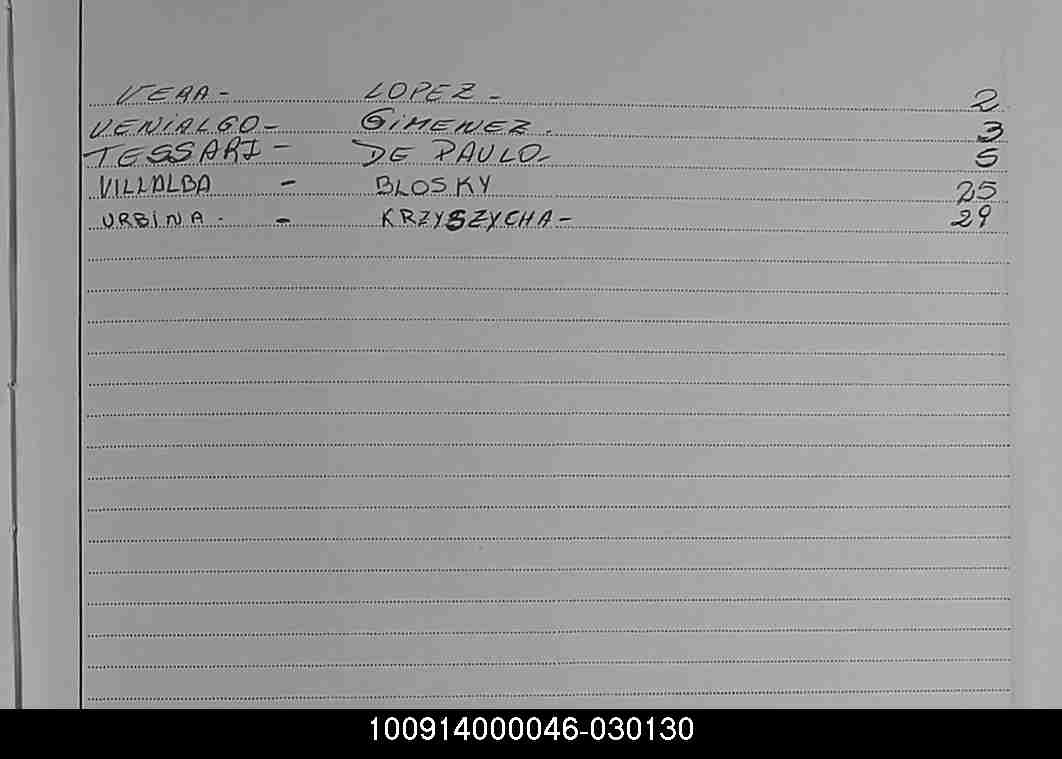 VERA - LOPEZ - 2
VENIALGO - GIMENEZ. 3
TESSARI - DE PAULO - 5
VILLALBA - BLOSKY 25
URBINA. - KRZYSZYCHA - 29
100914000046-030130